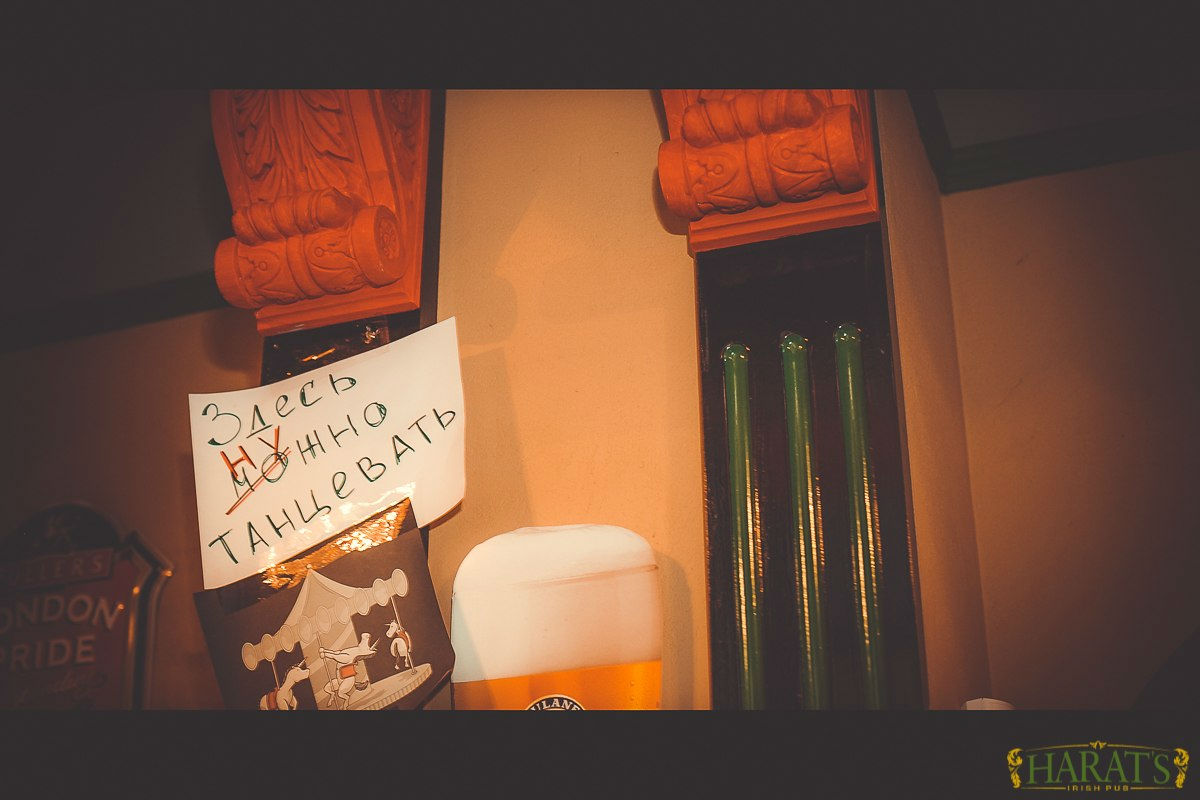 Здесь
НУ
можно
танцевать
LONDON
PRIDE
ULANE
HARAT'S
IRISH PUB